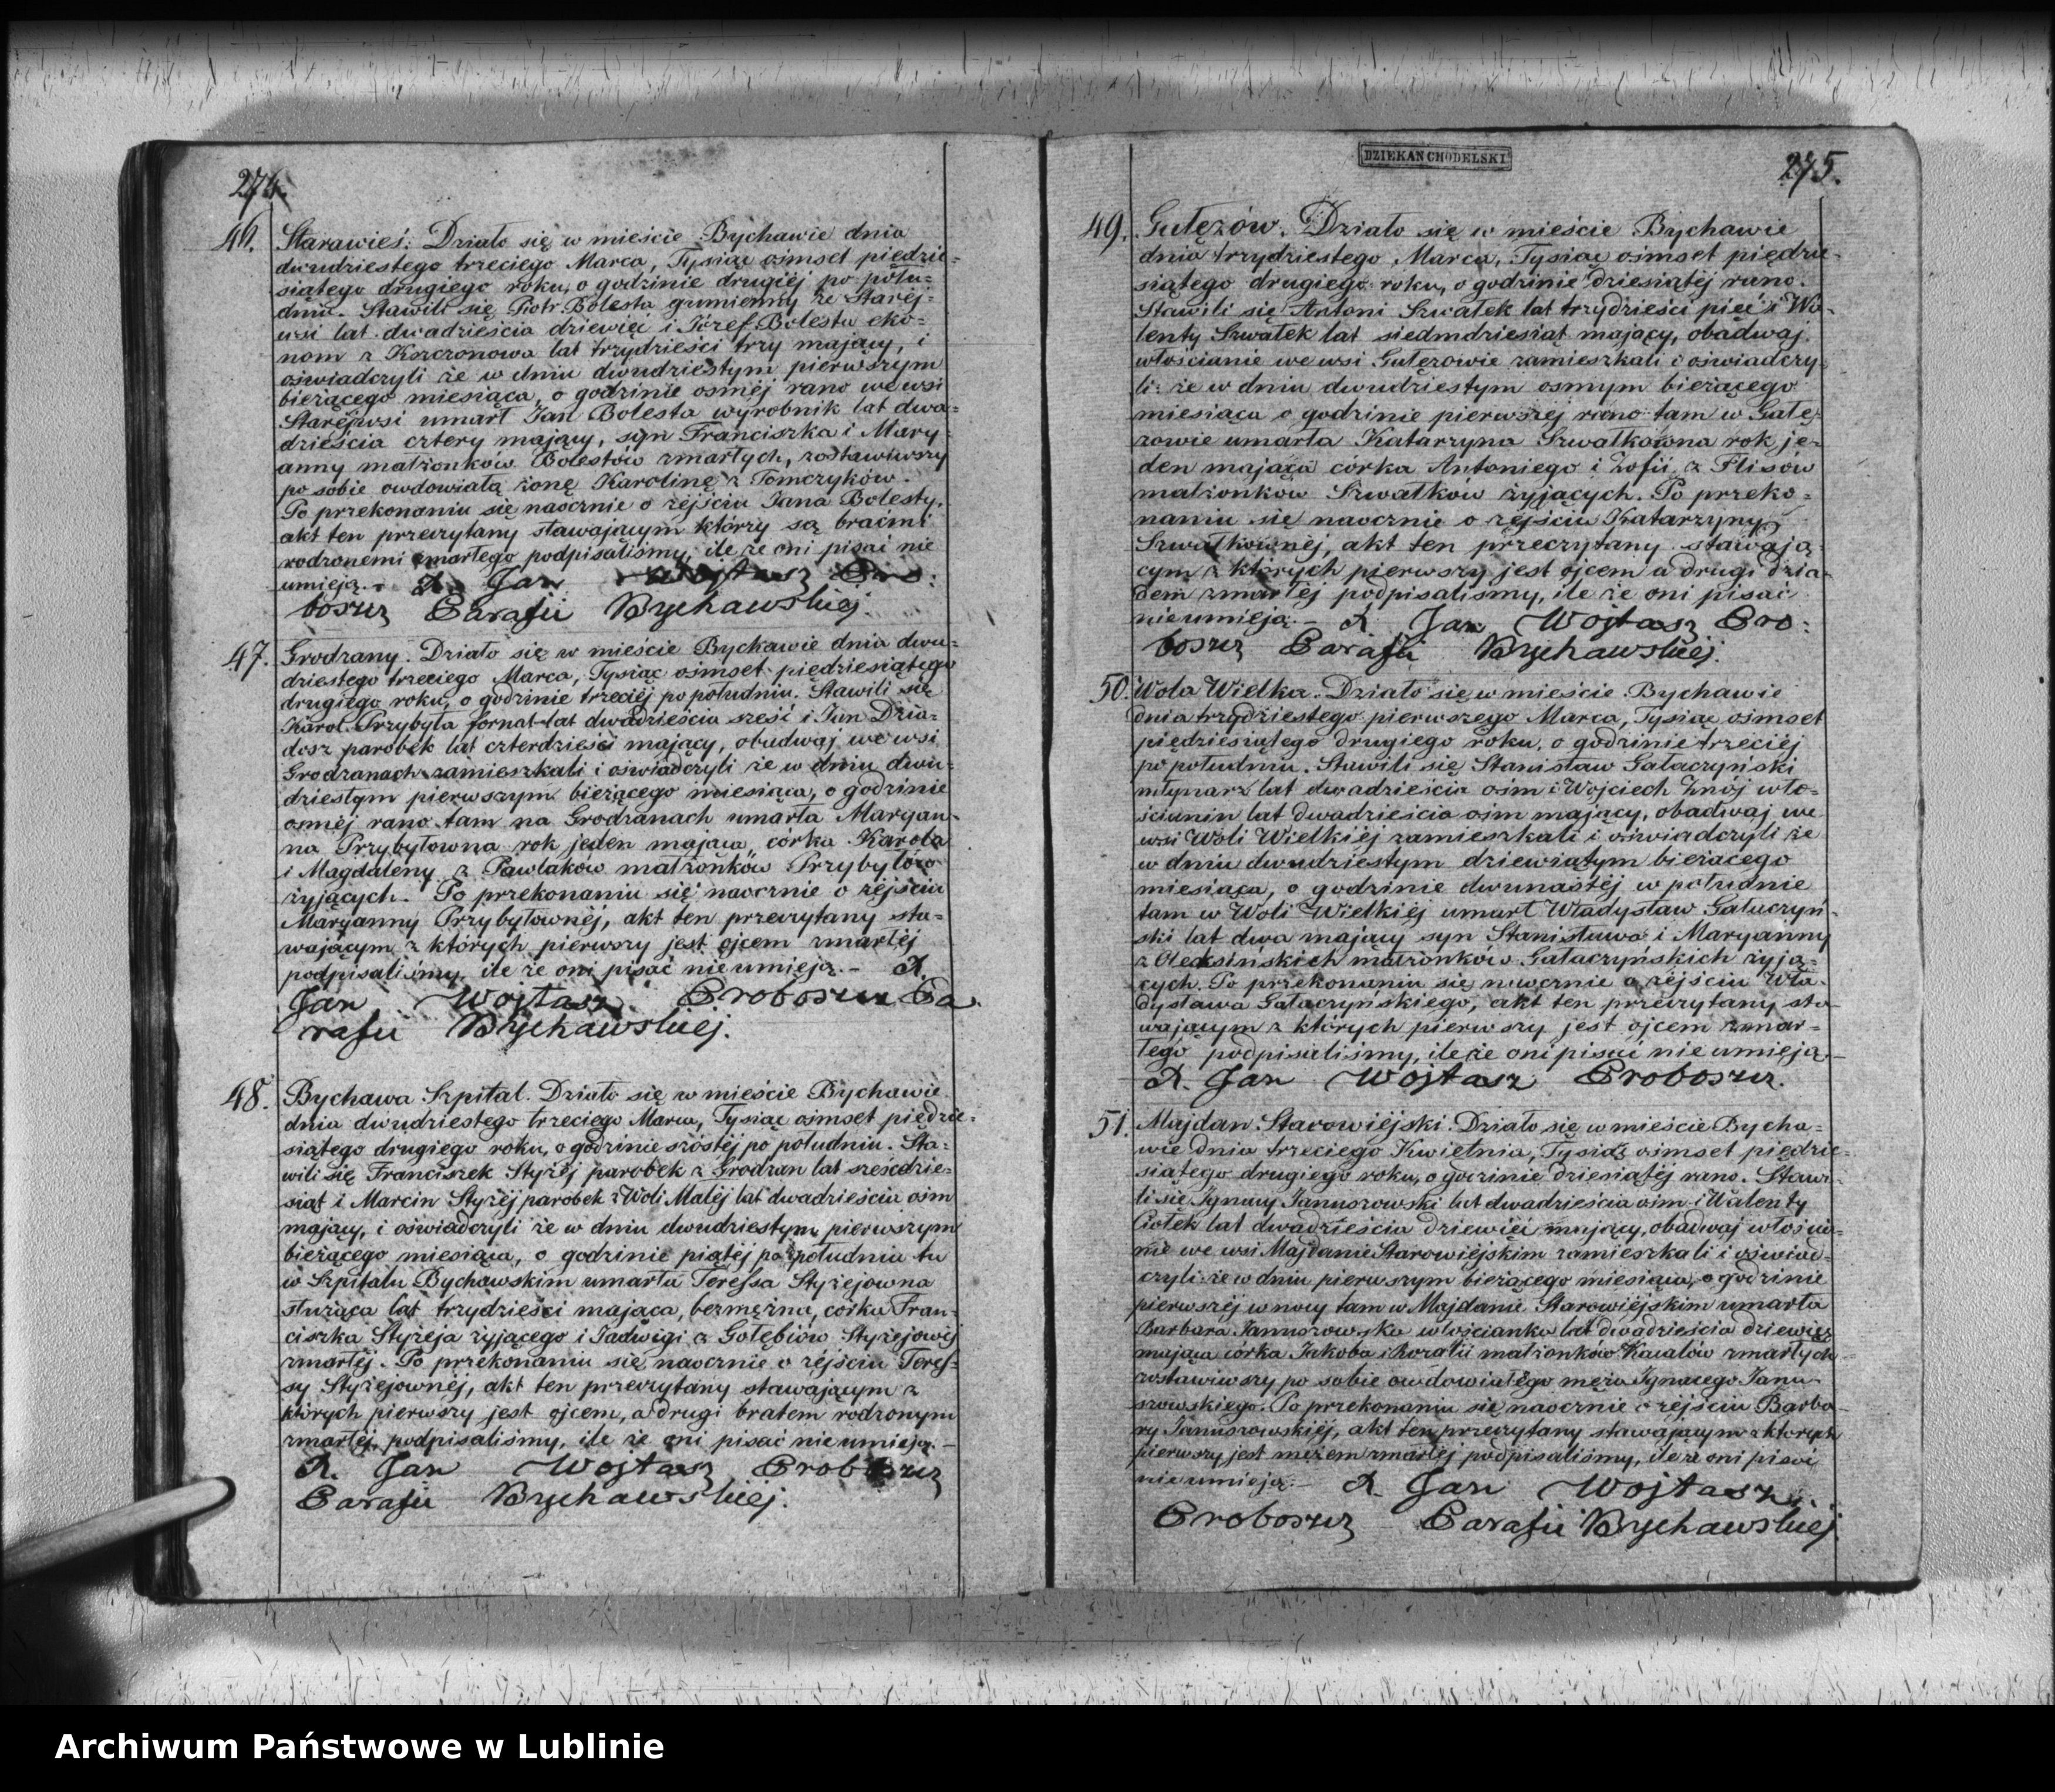 274.
46. Starawieś. Działo się w mieście Bychawie dnia
dwudziestego trzeciego Marca, Tysiąc ośmset piędzie-
siątego drugiego roku, o godzinie drugiéj po połu-
dniu. Stawili się Piotr Bolesta gumienny ze Staréj-
wsi lat dwadzieścia dziewięć i Józef Bolesta eko-
nom z lat trzydzieści trzy mający, i
oświadczyli że w dniu dwudziestym pierwszym
bieżącego miesiąca, o godzinie osméj rano we wsi
Staréjwsi umarł Jan Bolesta wyrobnik lat dwa-
dzieścia cztery mający, syn Franciszka i Mary-
anny małżonków Bolestów zmarłych, zostawiwszy
po sobie owdowiałą żonę Karolinę z Tomczyków.
Po przekonaniu się naocznie o zejściu Jana Bolesty,
akt ten przeczytany stawającym którzy są braćmi
rodzonemi zmarłego podpisaliśmy, ile że oni pisać nie
umieją. - X. Jan Wojtasz Pro:
boszcz Parafii Bychawskiej.
47. Grodzany. Działo się w mieście Bychawie dnia dwu-
dziestego trzeciego Marca, Tysiąc ośmset piędziesiątego
drugiego roku, o godzinie trzeciéj po południu. Stawili się
Karol Przybyła fornal lat dwadzieścia sześć i Jan Dzia-
dosz parobek lat czterdzieści mający, obadwaj we wsi
Grodzanach zamieszkali i oświadczyli że w dniu dwu-
dziestym pierwszym bieżącego miesiąca, o godzinie
osméj rano tam na Grodzanach umarła Maryan-
na Przybyłowna rok jeden mająca, córka Karola
i Magdaleny z Pawlaków małżonków Przybyłów
żyjących. Po przekonaniu się naocznie o zejściu
Maryanny Przybyłownéj, akt ten przeczytany sta-
wającym z których pierwszy jest ojcem zmarłéj
podpisaliśmy, ile że oni pisać nie umieją. - X.
Jan Wojtasz Proboszcz Pa
rafii Bychawskiej.
48. Bychawa Szpital. Działo się w mieście Bychawie
dnia dwudziestego trzeciego Marca, Tysiąc ośmset piędzie-
siątego drugiego roku, o godzinie szóstéj po południu. Sta-
wili się Franciszek Styżéj parobek z Grodzan lat sześćdzie-
siąt i Marcin Styżéj parobek z Woli Małéj lat dwadzieścia ośm
mający, i oświadczyli że w dniu dwudziestym pierwszym
bieżącego miesiąca, o godzinie piątéj po południu tu
w Szpitalu Bychawskim umarła Teressa Styżejowna
służąca lat trzydzieści mająca, bezmężna, córka Fran-
ciszka Styżeja żyjącego i Jadwigi z Gołębiów Styżejowéj
zmarłéj. Po przekonaniu się naocznie o zejściu Teres-
sy Styżejownéj, akt ten przeczytany stawającym z
których pierwszy jest ojcem, a drugi bratem rodzonym
zmarłéj, podpisaliśmy, ile że oni pisać nie umieją. -
X. Jan Wojtasz Proboszcz
Parafii Bychawskiej.
DZIEKAN CHODELSKI
275.
49. Gułęzów. Działo się w mieście Bychawie
dnia trzydziestego Marca, Tysiąc ośmset piędzie-
siątego drugiego roku, o godzinie dziesiątéj rano.
Stawili się Antoni Szwałek lat trzydzieści pięć i Wa-
lenty Szwałek lat siedmdziesiąt mający, obadwaj
włościanie we wsi Gułęzowie zamieszkali i oświadczy-
li: że w dniu dwudziestym osmym bieżącego
miesiąca o godzinie pierwszéj rano tam w Gałę-
zowie umarła Katarzyna Szwałkowna rok je-
den mająca córka Antoniego i Zofii z Flisów
małżonków Szwałków żyjących. Po przeko-
naniu się naocznie o zejściu Katarzyny
Szwałkownéj, akt ten przeczytany stawają-
cym z których pierwszy jest ojcem a drugi dzia-
dem zmarłéj podpisaliśmy, ile że oni pisać
nieumieją. - X. Jan Wojtasz Pro:
boszcz Parafii Bychawskiej.
50. Wola Wielka. Działo się w mieście Bychawie
dnia trzydziestego pierwszego Marca, Tysiąc ośmset
piędziesiątego drugiego roku, o godzinie trzeciéj
po południu. Stawili się Stanisław Gałaczyński
młynarz lat dwadzieścia ośm i Wojciech Znój wło-
ścianin lat dwadzieścia ośm mający, obadwaj we
wsi Woli Wielkiéj zamieszkali i oświadczyli że
w dniu dwudziestym dziewiątym bieżącego
miesiąca, o godzinie dwunastéj w południe
tam w Woli Wielkiéj umarł Władysław Gałaczyń-
ski lat dwa mający syn Stanisława i Maryanny
z Oleksińskich małżonków Gałaczyńskich żyją-
cych. Po przekonaniu się naocznie o zejściu Wła-
dysława Gałaczyńskiego, akt ten przeczytany sta-
wającym z których pierwszy jest ojcem zmar-
łego podpisaliśmy, ile że oni pisać nie umieją. -
X. Jan Wojtasz Proboszcz.
51. Majdan Starowiéjski. Działo się w mieście Bycha-
wie dnia trzeciego Kwietnia, Tysiąc ośmset piędzie-
siątego drugiego roku, o godzinie dziesiątéj rano. Stawi-
li się Ignacy Januszowski lat dwadzieścia ośm i Walenty
Ciołek lat dwadzieścia dziewięć mający, obadwaj włościa-
nie we wsi Majdanie Starowiéjskim zamieszkali i oświad-
czyli: że w dniu pierwszym bieżącego miesiąca, o godzinie
pierwszéj w nocy tam w Majdanie Starowiéjskim umarła
Barbara Januszowska włościanka lat dwadzieścia dziewięć
mająca córka Jakóba i Rozalii małżonków Kawałów zmarłych
zostawiwszy po sobie owdowiałego męża Ignacego Janu-
szowskiego. Po przekonaniu się naocznie o zejściu Barba-
ry Januszowskiéj, akt ten przeczytany stawającym z których
pierwszy jest mężem zmarłéj podpisaliśmy, ile że oni pisać
nie umieją. - X. Jan Wojtasz
Proboszcz Parafii Bychawskiej.
Archiwum Państwowe w Lublinie